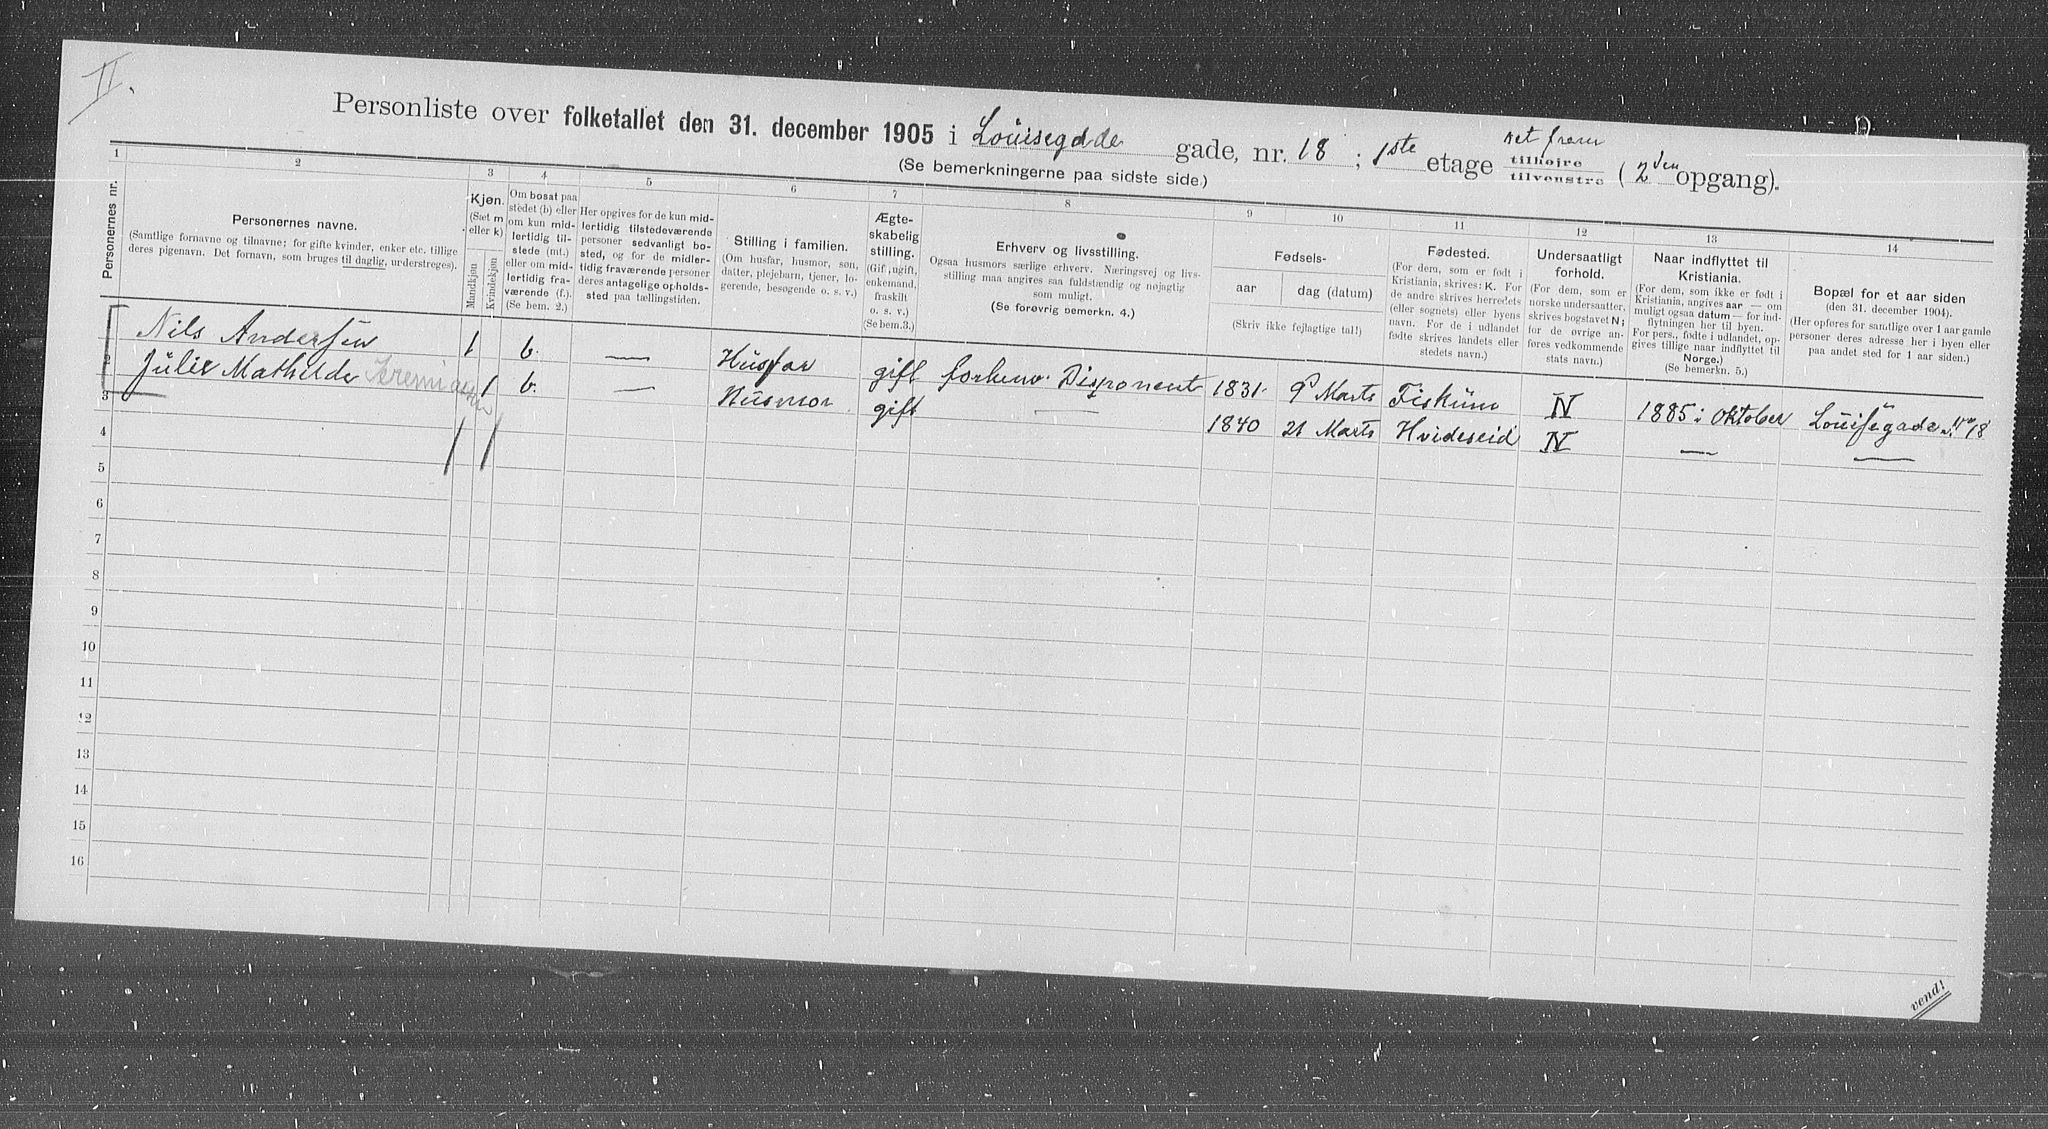 II.
Personliste over folketallet den 31. december 1905 i Louisegade gade, nr. 18 ; 1ste etage tilhøjre tilvenstre (2den opgang).
(Se bemerkningerne paa sidste side.)
1 2 3 4 5 6 7 8 9 10 11 12 13 14
Personernes nr.
Personernes navne.
(Samtlige fornavne og tilnavne; for gifte kvinder, enker etc. tillige
deres pigenavn. Det fornavn, som bruges til daglig, understreges).
Kjøn.
(Sæt m
eller k)
Mandkjøn
Kvindekjøn
Om bosat paa
stedet (b) eller
om kun mid-
lertidig til-
stede (mt.)
eller om mid-
lertidig fra-
værende (f.).
(Se bem. 2.)
Her opgives for de kun mid-
lertidig tilstedeværende
personer sedvanligt bo-
sted, og for de midler-
tidig fraværende personer
deres antagelige opholds-
sted paa tællingstiden.
Stilling i familien.
(Om husfar, husmor, søn,
datter, plejebarn, tjener, lo-
gerende, besøgende o. s. v.)
Ægte-
skabelig
stilling.
(Gift, ugift,
enkemand,
fraskilt
o. s. v.)
(Se bem.3.)
Erhverv og livsstilling.
Ogsaa husmors særlige erhverv. Næringsvej og livs-
stilling maa angives saa fuldstændig og nøjagtig
som muligt.
(Se forøvrig bemerkn. 4.)
Fødsels-
aar dag (datum)
(Skriv ikke fejlagtige tal!)
Fødested.
(For dem, som er født i
Kristiania, skrives: K. For
de andre skrives herredets
(eller sognets) eller byens
navn. For de i udlandet
fødte skrives landets eller
stedets navn.)
Undersaatligt
forhold.
(For dem, som er
norske undersaatter,
skrives bogstavet N;
for de øvrige an-
føres vedkommende
stats navn.)
Naar indflyttet til
Kristiania.
(For dem, som ikke er født i
Kristiania, angives aar — om
muligt ogsaa datum — for ind-
flytningen her til byen.
For pers., fødte i udlandet, op-
gives tillige naar indflyttet til
Norge.)
(Se bemerkn. 5.)
Bopæl for et aar siden
(den 31. december 1904).
(Her opføres for samtlige over 1 aar gamle
personer deres adresse her i byen eller
paa andet sted for 1 aar siden.)
Nils Andersen 1 b. — Husfar gift forhenv. Disponent 1831 9 Marts Fiskum N 1885 i Oktober Louisegade No 18
Julie Mathilde 1 b. — Husmor gift — 1840 21 Marts Hvideseid N — —
3
4
5
6
7
8
9
10
11
12
13
14
15
16
vend!